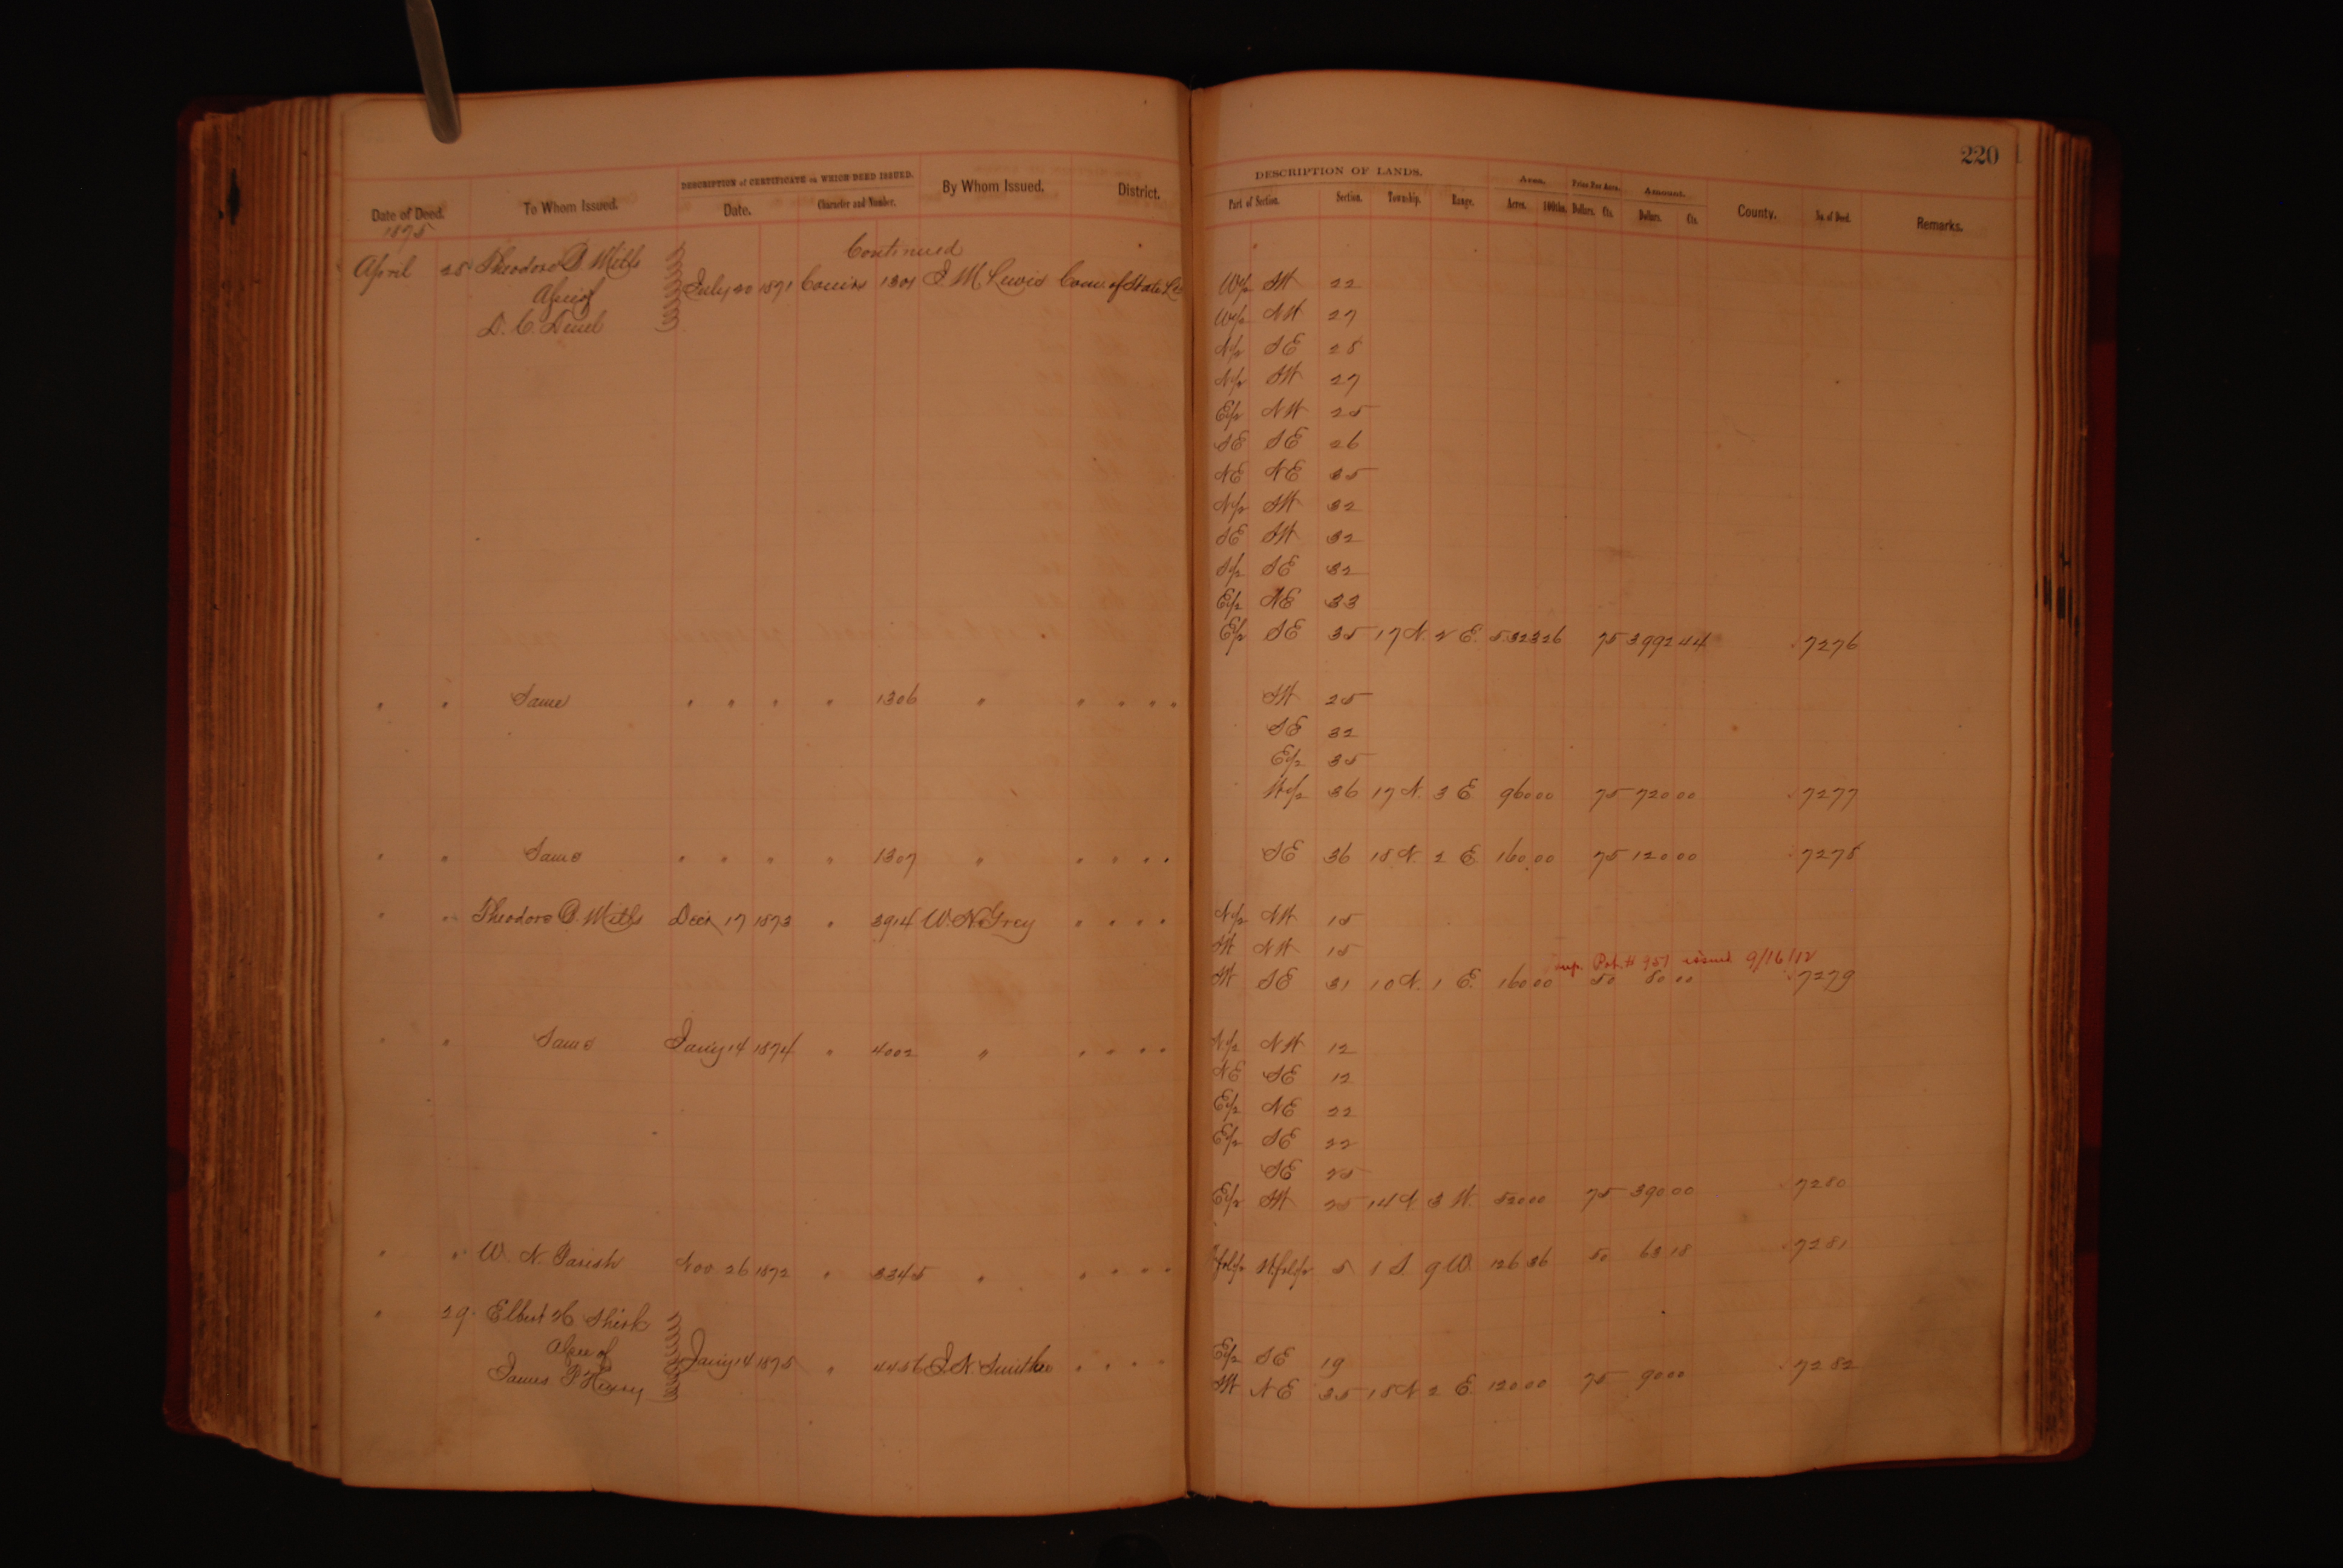 220
DESCRIPTION of CERTIFICATE on WHICH DEED ISSUED. By Whom Issued. District. DESCRIPTION OF LANDS. Area. Price Per Acre. Amount. County. No. of Deed. Remarks.
Date of Deed. To Whom Issued. Date. Character and Number. Part of Section. Section. Township. Range. Acres. 100ths. Dollars. Cts. Dollars. Cts.
1875
Continued
April 28 Theodore D. Mills July 20 1871 1301 J M Lewis Com. of State W/2 SW 22
Asnee of W/2 NW 27
D. C. N/2 SE 28
N/2 SW 27
E/2 NW 25
SE SE 26
NE NE 35
N/2 SW 32
SE SW 32
S/2 SE 32
E/2 NE 33
E/2 SE 35 17 N. 2 E. 5323 26 75 3992 44 7276
" " Same " " " " 1306 " " " " " SW 25
SE 32
E/2 35
W/2 36 17 N. 3 E 960 00 75 720 00 7277
" " Same " " " " 1307 " " " " " SE 36 18 N. 2 E. 160 00 75 120 00 7278
" " Theodore D. Mills Decr 17 1873 " 3914 W. N. Grey " " " " N/2 NW 15
SW NW 15
sup. Pat. # 951 issued 9/16/12
SW SE 31 10 N. 1 E. 160 00 50 80 00 7279
" " Same Jany 14 1874 " 4002 " " " " " N/2 NW 12
NE SE 12
E/2 NE 22
E/2 SE 22
SE 25
E/2 SW 25 14 N. 3 W. 520 00 75 390 00 7280
" " W. N. Parish Nov 26 1872 " 3345 " " " " " 5 1 S. 9 W. 126 36 50 63 18 7281
" 29 Elbert H Shirk
Asnee of Jany 14 1875 " 4456 J. N. Smithee " " " " E/2 SE 19
James P Henry SW NE 35 18 N 2 E. 120 00 75 90 00 7282